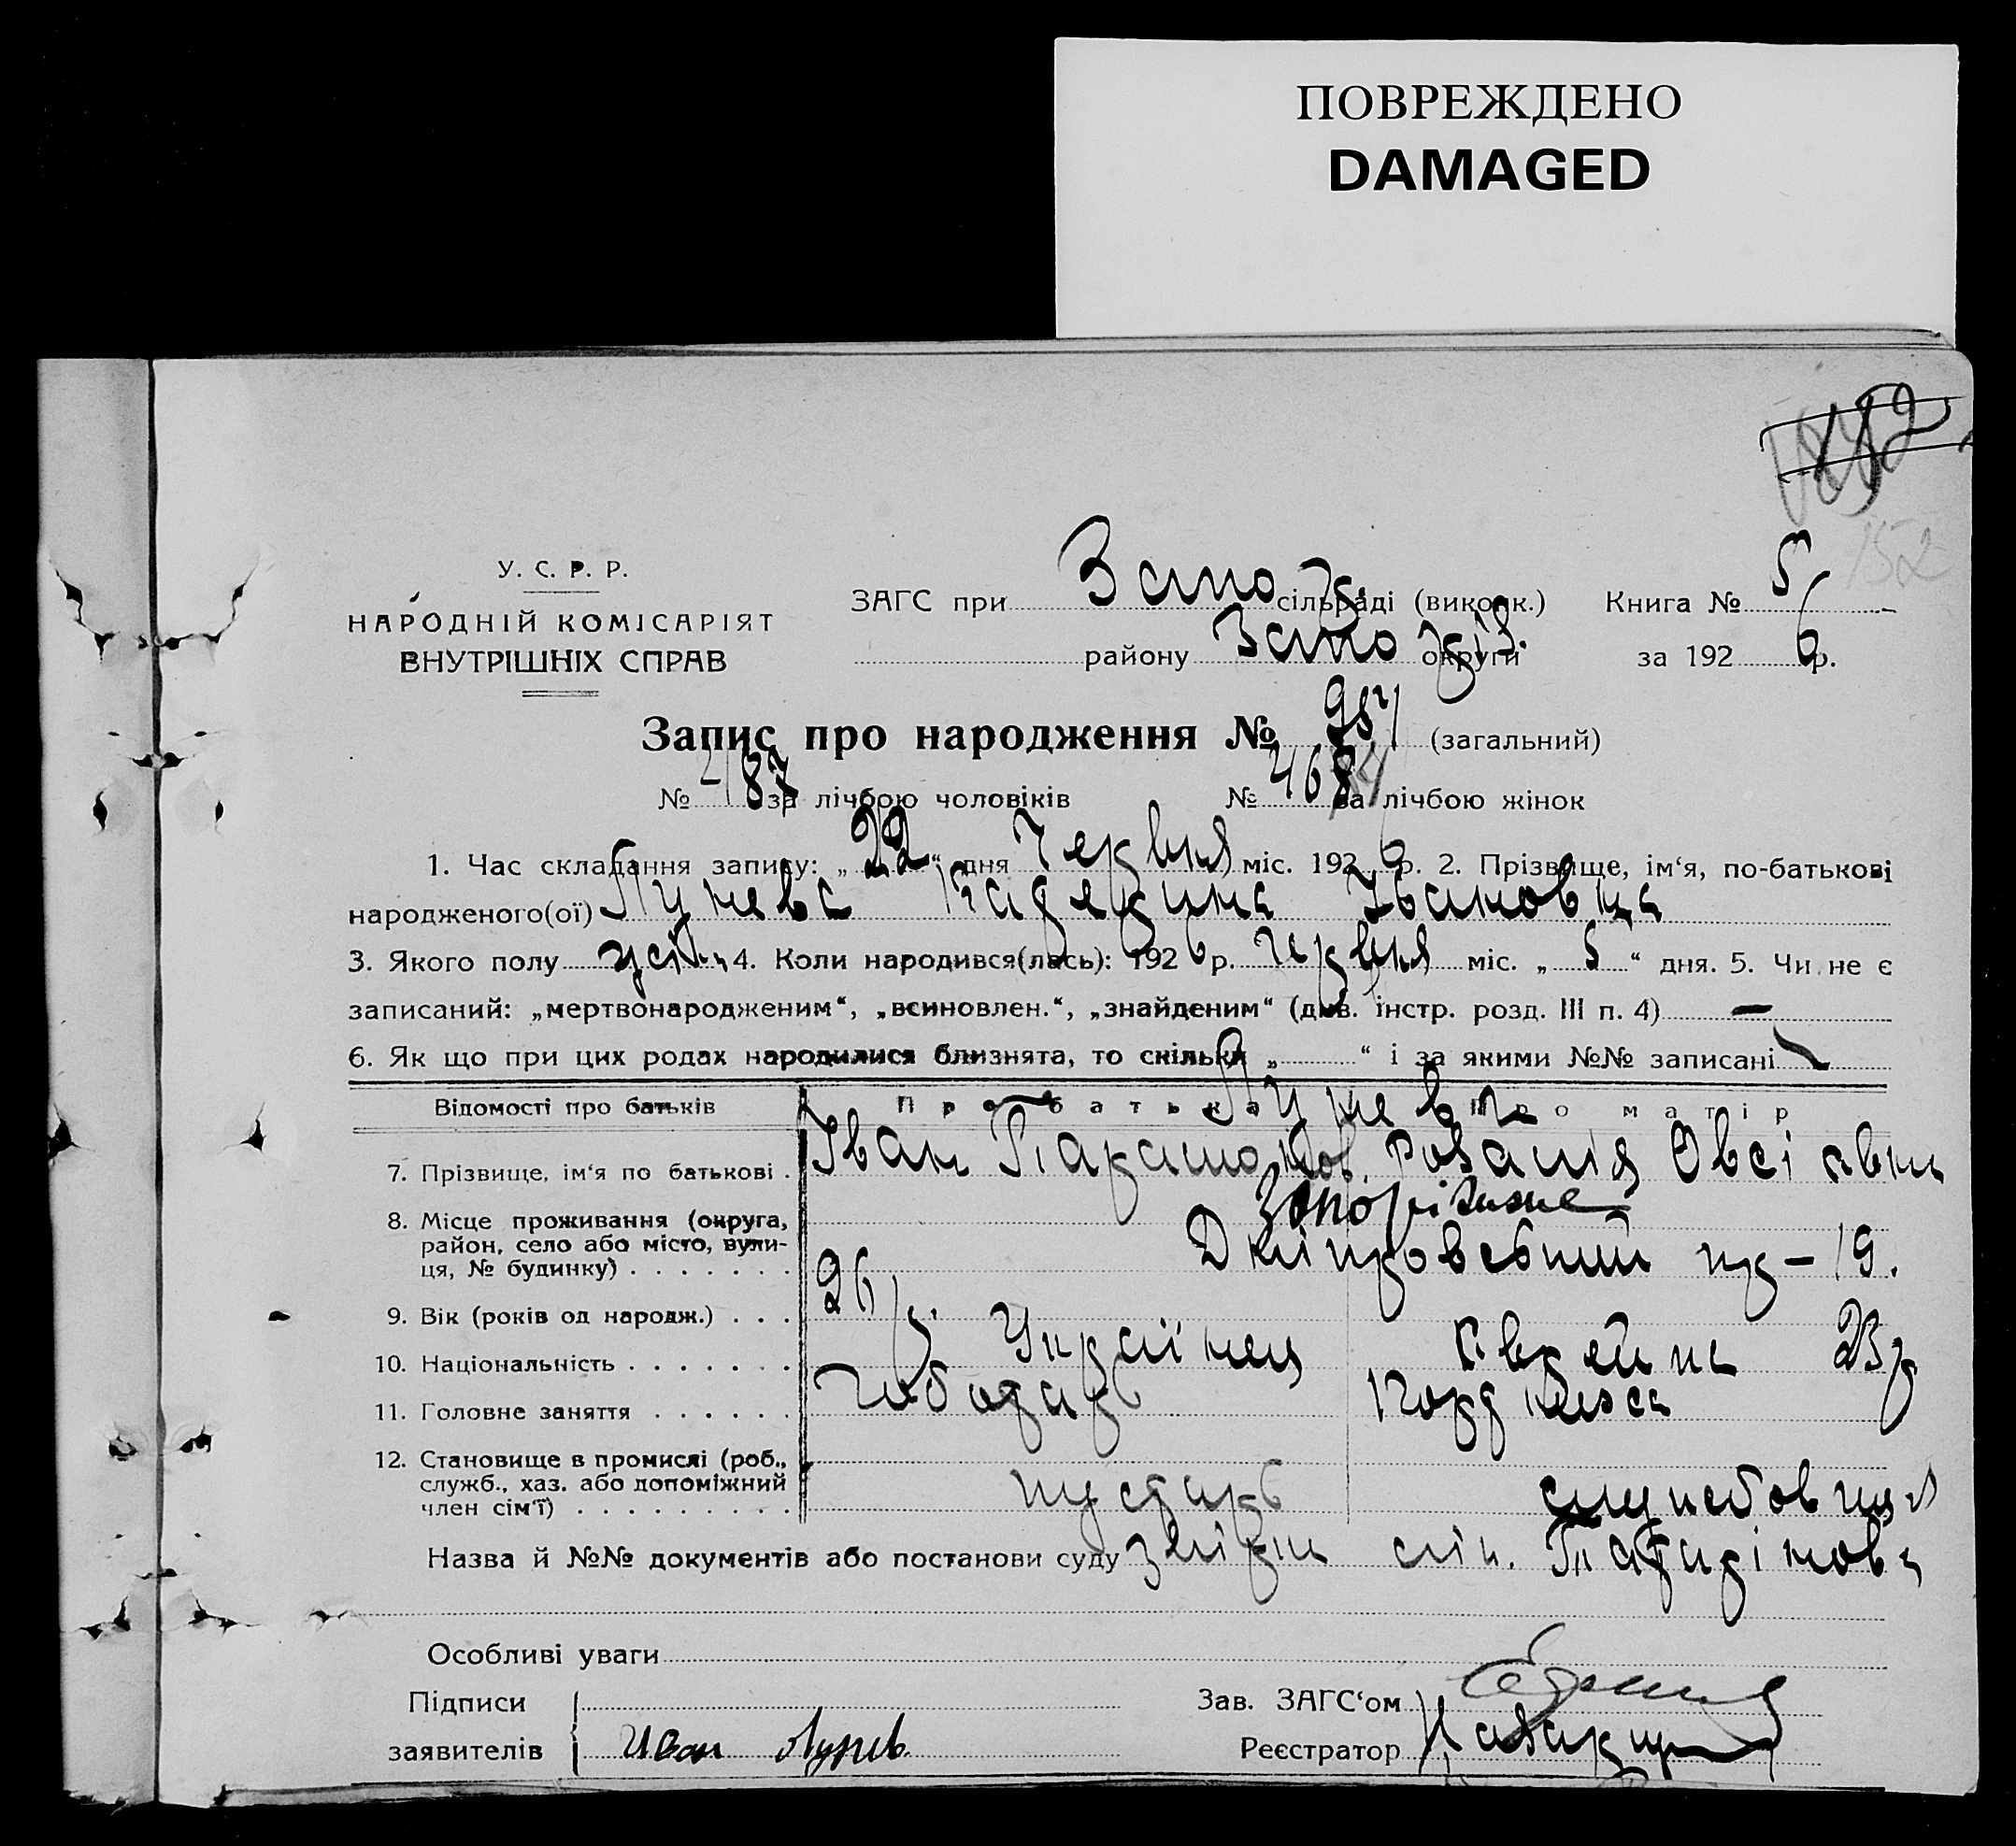 ПОВРЕЖДЕНО
DAMAGED
152
У. С. Р. Р.
НАРОДНІЙ КОМІСАРІЯТ
ВНУТРІШНІХ СПРАВ
ЗАГС при Запо сільраді (виконк.) Книга № 5
району Запоріз. округи за 1926 р.
Запис про народження № 957 (загальний)
№ 487 за лічбою чоловіків № за лічбою жінок
1. Час складання запису: „22“ дня Червня міс. 1926 р. 2. Прізвище, ім‘я, по-батькові
народженого(ої) Лунева Катерина Івановна
3. Якого полу жін. 4. Коли народився(лась): 1926 р. червня міс. „5“ дня. 5. Чи не є
записаний: „мертвонародженим“, „всиновлен.“, „знайденим“ (див. інстр. розд. III п. 4) —
6. Як що при цих родах народилися близнята, то скільки „ “ і за якими №№ записані
Відомості про батьків Про батька Про матір
Луневы
7. Прізвище, ім‘я по батькові . Іван Парамонов. Розалія Овсіевна
Запоріжже
8. Місце проживання (округа,
район, село або місто, вули-
ця, № будинку) . . . . . . . Дніпровський пр – 19.
9. Вік (років од народж.) . . . 26 р. 23 р.
10. Національність . . . . . . . Українец Еврейка
11. Головне заняття . . . . . .
12. Становище в промислі (роб.,
служб., хаз. або допоміжний
член сім‘ї) . . . . . . . . . кустарь службовиця
Назва й №№ документів або постанови суду
Особливі уваги
Підписи Зав. ЗАГС‘ом
заявителів Иван Лунев. Реєстратор